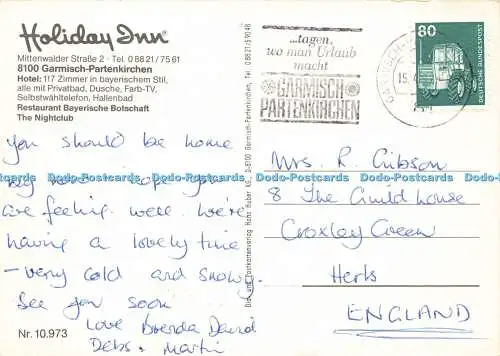 Holiday Inn
Mittenwalder Straße 2 · Tel. 0 88 21 / 75 61
8100 Garmisch-Partenkirchen
Hotel: 117 Zimmer in bayerischem Stil,
alle mit Privatbad, Dusche, Farb-TV,
Selbstwähltelefon, Hallenbad
Restaurant Bayerische Botschaft
The Nightclub
you should be home
by now hope you
are feeling well. We're
having a lovely time
- very cold and snowy.
See you soon
Love Brenda David
Debs. Martin
Nr. 10.973
Huber KG, D-8100 Garmisch-Partenkirchen, Tel. 0 88 21 / 5 90 48
...tagen,
wo man Urlaub
macht
GARMISCH
PARTENKIRCHEN
80
DEUTSCHE BUNDESPOST
Mrs. R. Gibson
8 The Guild house
Croxley Green
Herts
ENGLAND
Dodo-Postcards Dodo-Postcards Dodo-Postcards Dodo-Postcards